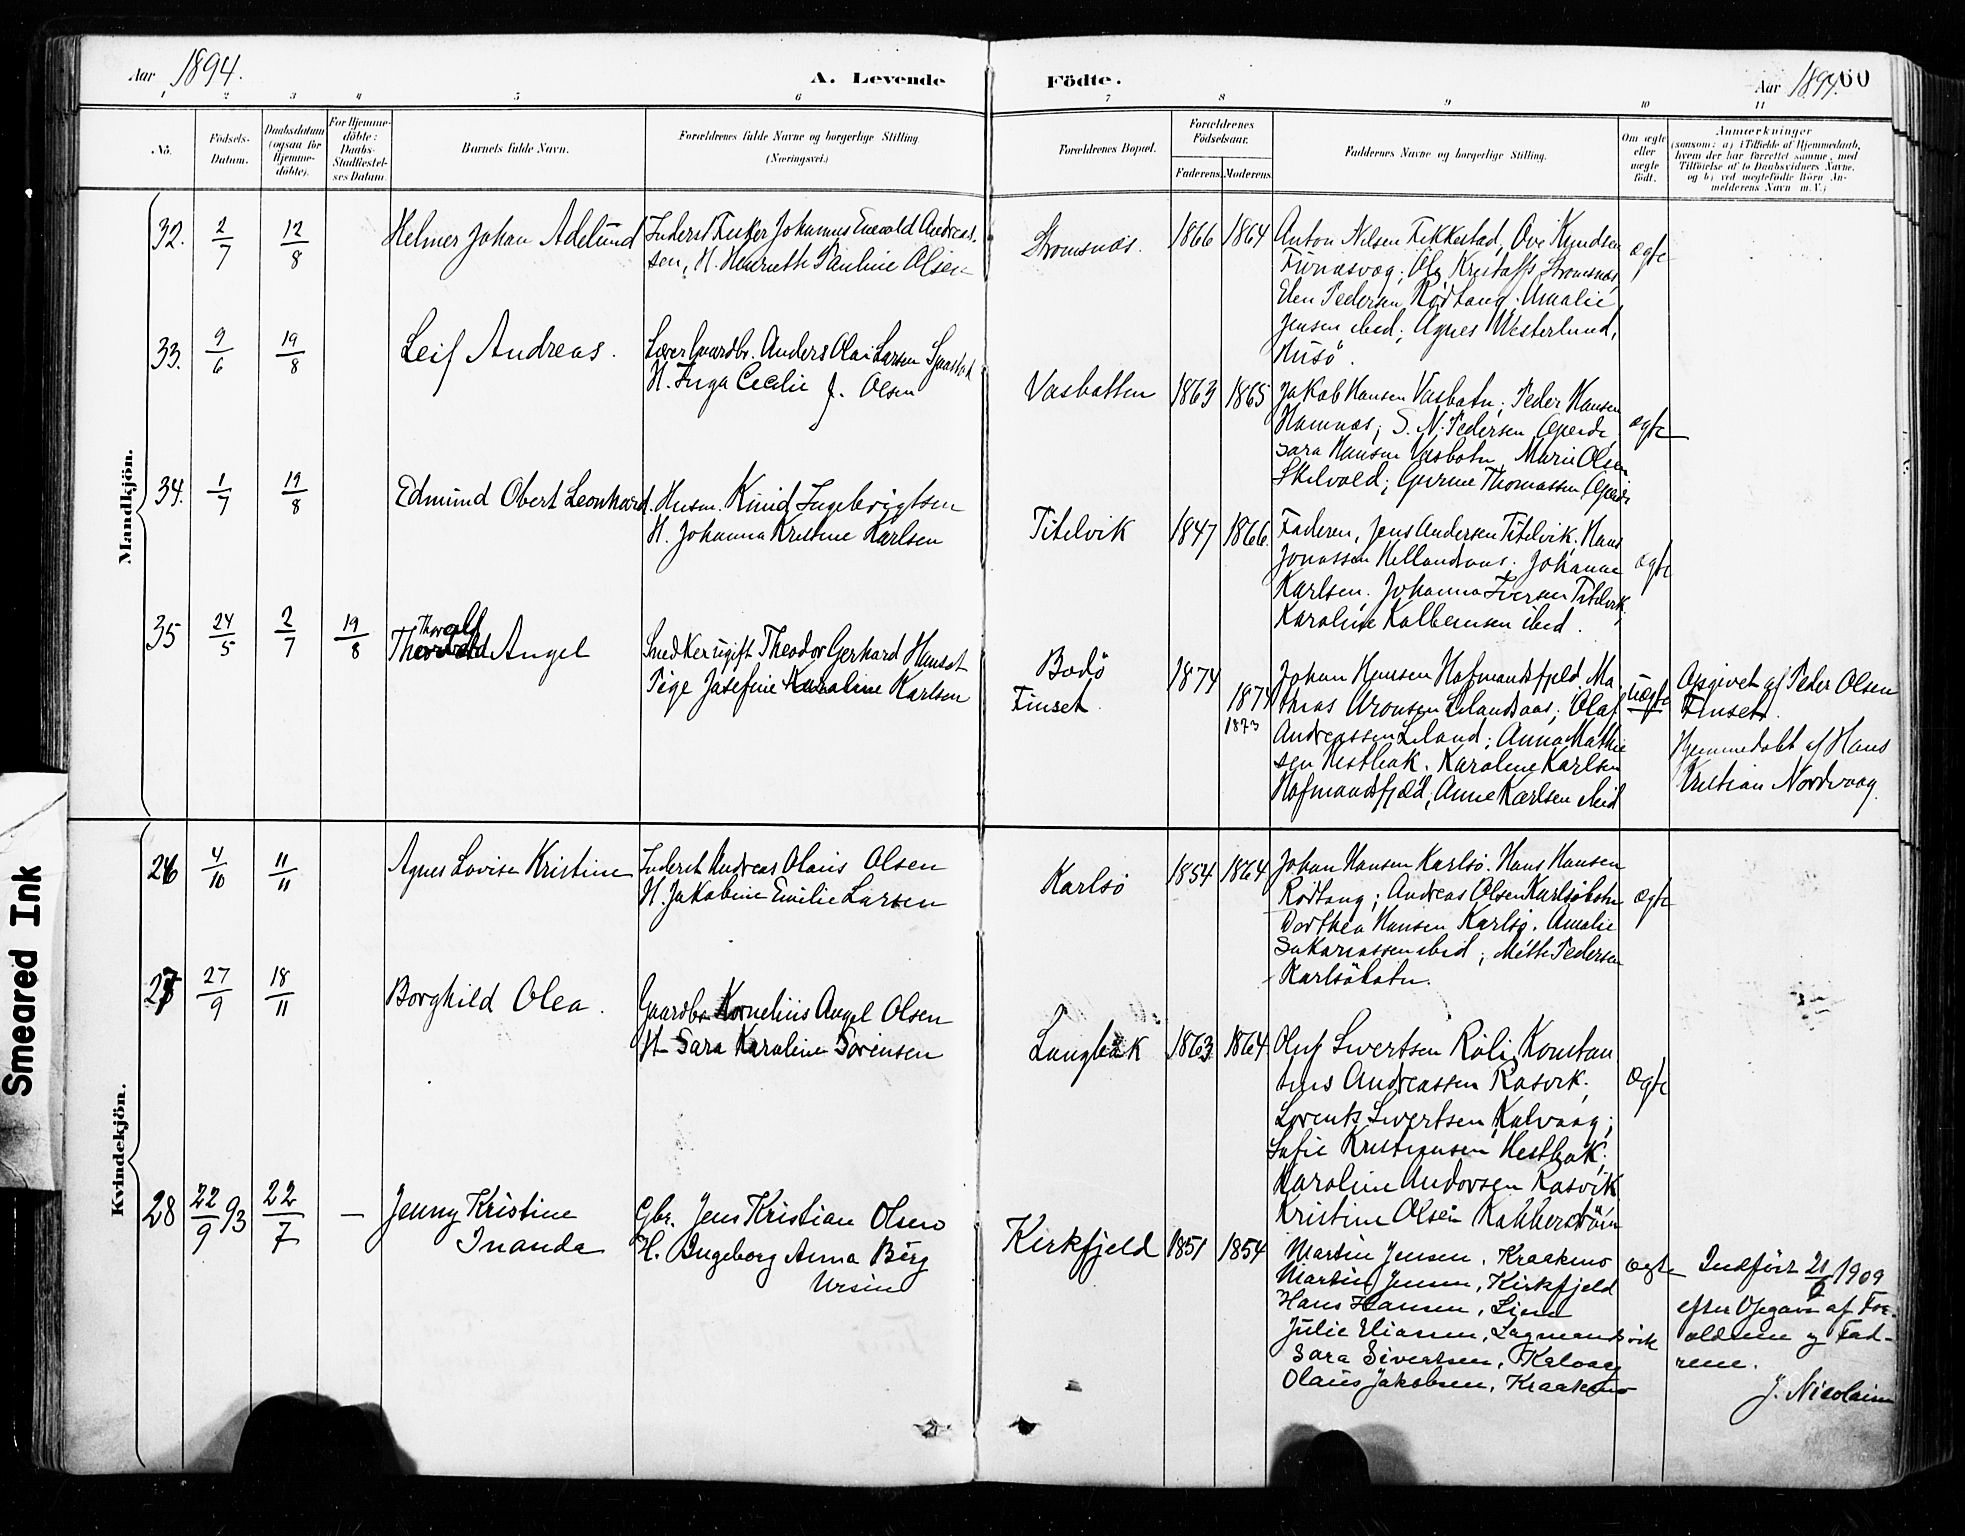 Aar 1894.
A. Levende
Födte.
Aar 1894.
60
1 2 3 4 5 6 7 8 9 10 11
No.
Födsels-
Datum.
Daabsdatum
(ogsaa for
Hjemme-
döbte).
For Hjemme-
döbte:
Daabs-
Stadfæstel-
ses Datum.
Barnets fulde Navn.
Forældrenes fulde Navne og borgerlige Stilling
(Næringsvei.)
Forældrenes Bopæl.
Forældrenes
Födselsaar.
Faderens.
Moderens.
Faddernes Navne og borgerlige Stilling.
Om ægte
eller
uægte
födt.
Anmærkninger
(saasom: a) i Tilfælde af Hjemmedaab,
hvem der har forrettet samme, med
Tilföielse af to Daabsvidners Navne.
og b) ved uegtefödte Börn An-
melderens Navn m. V.)
Mandkjön.
32. 2/7 12/8 Helmer Johan Adelund
Inderst Fisker Johannes Enevold Andreas-
sen, H. Henriette Pauline Olsen
Stromsnæs. 1866 1864
Anton Nilsen Fikkestad, Ove Knudsen
Stromsnæs,
Elen Pedersen Rödtang. Amalie
Jensen ibid; Agnes Westerlund,
Husö.
ægte
33. 9/6 19/8 Leif Andreas.
Lærer Gaardbr. Anders Olai Larsen
H. Inga Cecilie J. Olsen
Vasbotten 1863 1865
Jakob Hansen Vasbotn; Peder Hansen
Hamnæs; S. N. Pedersen
Sara Hansen Vasbotn, Marie Olsen
Skilvold; Thomassen
ægte
34. 1/7 19/8 Edmund Obert Leonhard.
Husm. Knud Ingebrigtsen
H. Johanna Kristine Karlsen
Titelvik 1847 1866
Faderen, Jens Andersen Titelvik; Hans
Jonassen Hellandsaas. Johanna
Karlsen. Johanna Iversen Titelvik,
Karoline ibid.
ægte
35 24/5 2/7 19/8 Thoralf Angel
Snedker ugift Theodor Gerhard Hansen
Pige Josefine Karoline Karlsen
Bodö
Finset 1874 1874
1873
Johan Hansen Hofmandsfjeld Ma-
thias Aronsen Lilandsaas; Olaf
Andreassen Liland; Anna Mathi-
sen Hestbak. Karoline Karlsen
Hofmandsfjeld, Anne Karlsen ibid
uægte
Opgivet af Peder Olsen
Finset.
Hjemmedöbt af Hans
Kristian Nordvaag.
Kvindekjön.
26 4/10 11/11 Agnes Lovise Kristine
Inderst Andreas Olaus Olsen
H. Jakobine Emilie Larsen
Karlsö 1854 1864
Johan Hansen Karlsö. Hans Hansen
Rödtang; Andreas Olsen Karlsöbotn
Dorthea Hansen Karlsö. Amalie
Sakariassen ibid; Mette Pedersen
Karlsöbotn.
ægte
27 27/9 18/11 Borghild Olea.
Gaardbr Kornelius Angel Olsen
H Sara Karoline Sörensen
Langbak 1863 1864
Oluf Sivertsen Röli, Konstan
tius Andreassen Rasvik;
Lorents Sivertsen Kalvaag;
Sofie Kristiansen Hestbak;
Karoline Andorsen Rasvik
Kristine Olsen Kobberström
ægte
28 22/9 93 22/7 — Jenny Kristine
Inanda
Gbr. Jens Kristian Olsen
H. Ingeborg Anna Berg
Ursin
Kirkfjeld 1851 1854
Martin Jensen, Kraakmo
Martin Jensen, Kirkfjeld
Hans Hansen,
Julie Eliassen, Lagmandsvik
Sara Sivertsen, Kalvaag
Olaus Jakobsen, Kraakmo
ægte
Indfört 21/2 1909
efter Opgave af For-
ældrene og Fad-
rene.
J. Nicolaisen
Smeared Ink